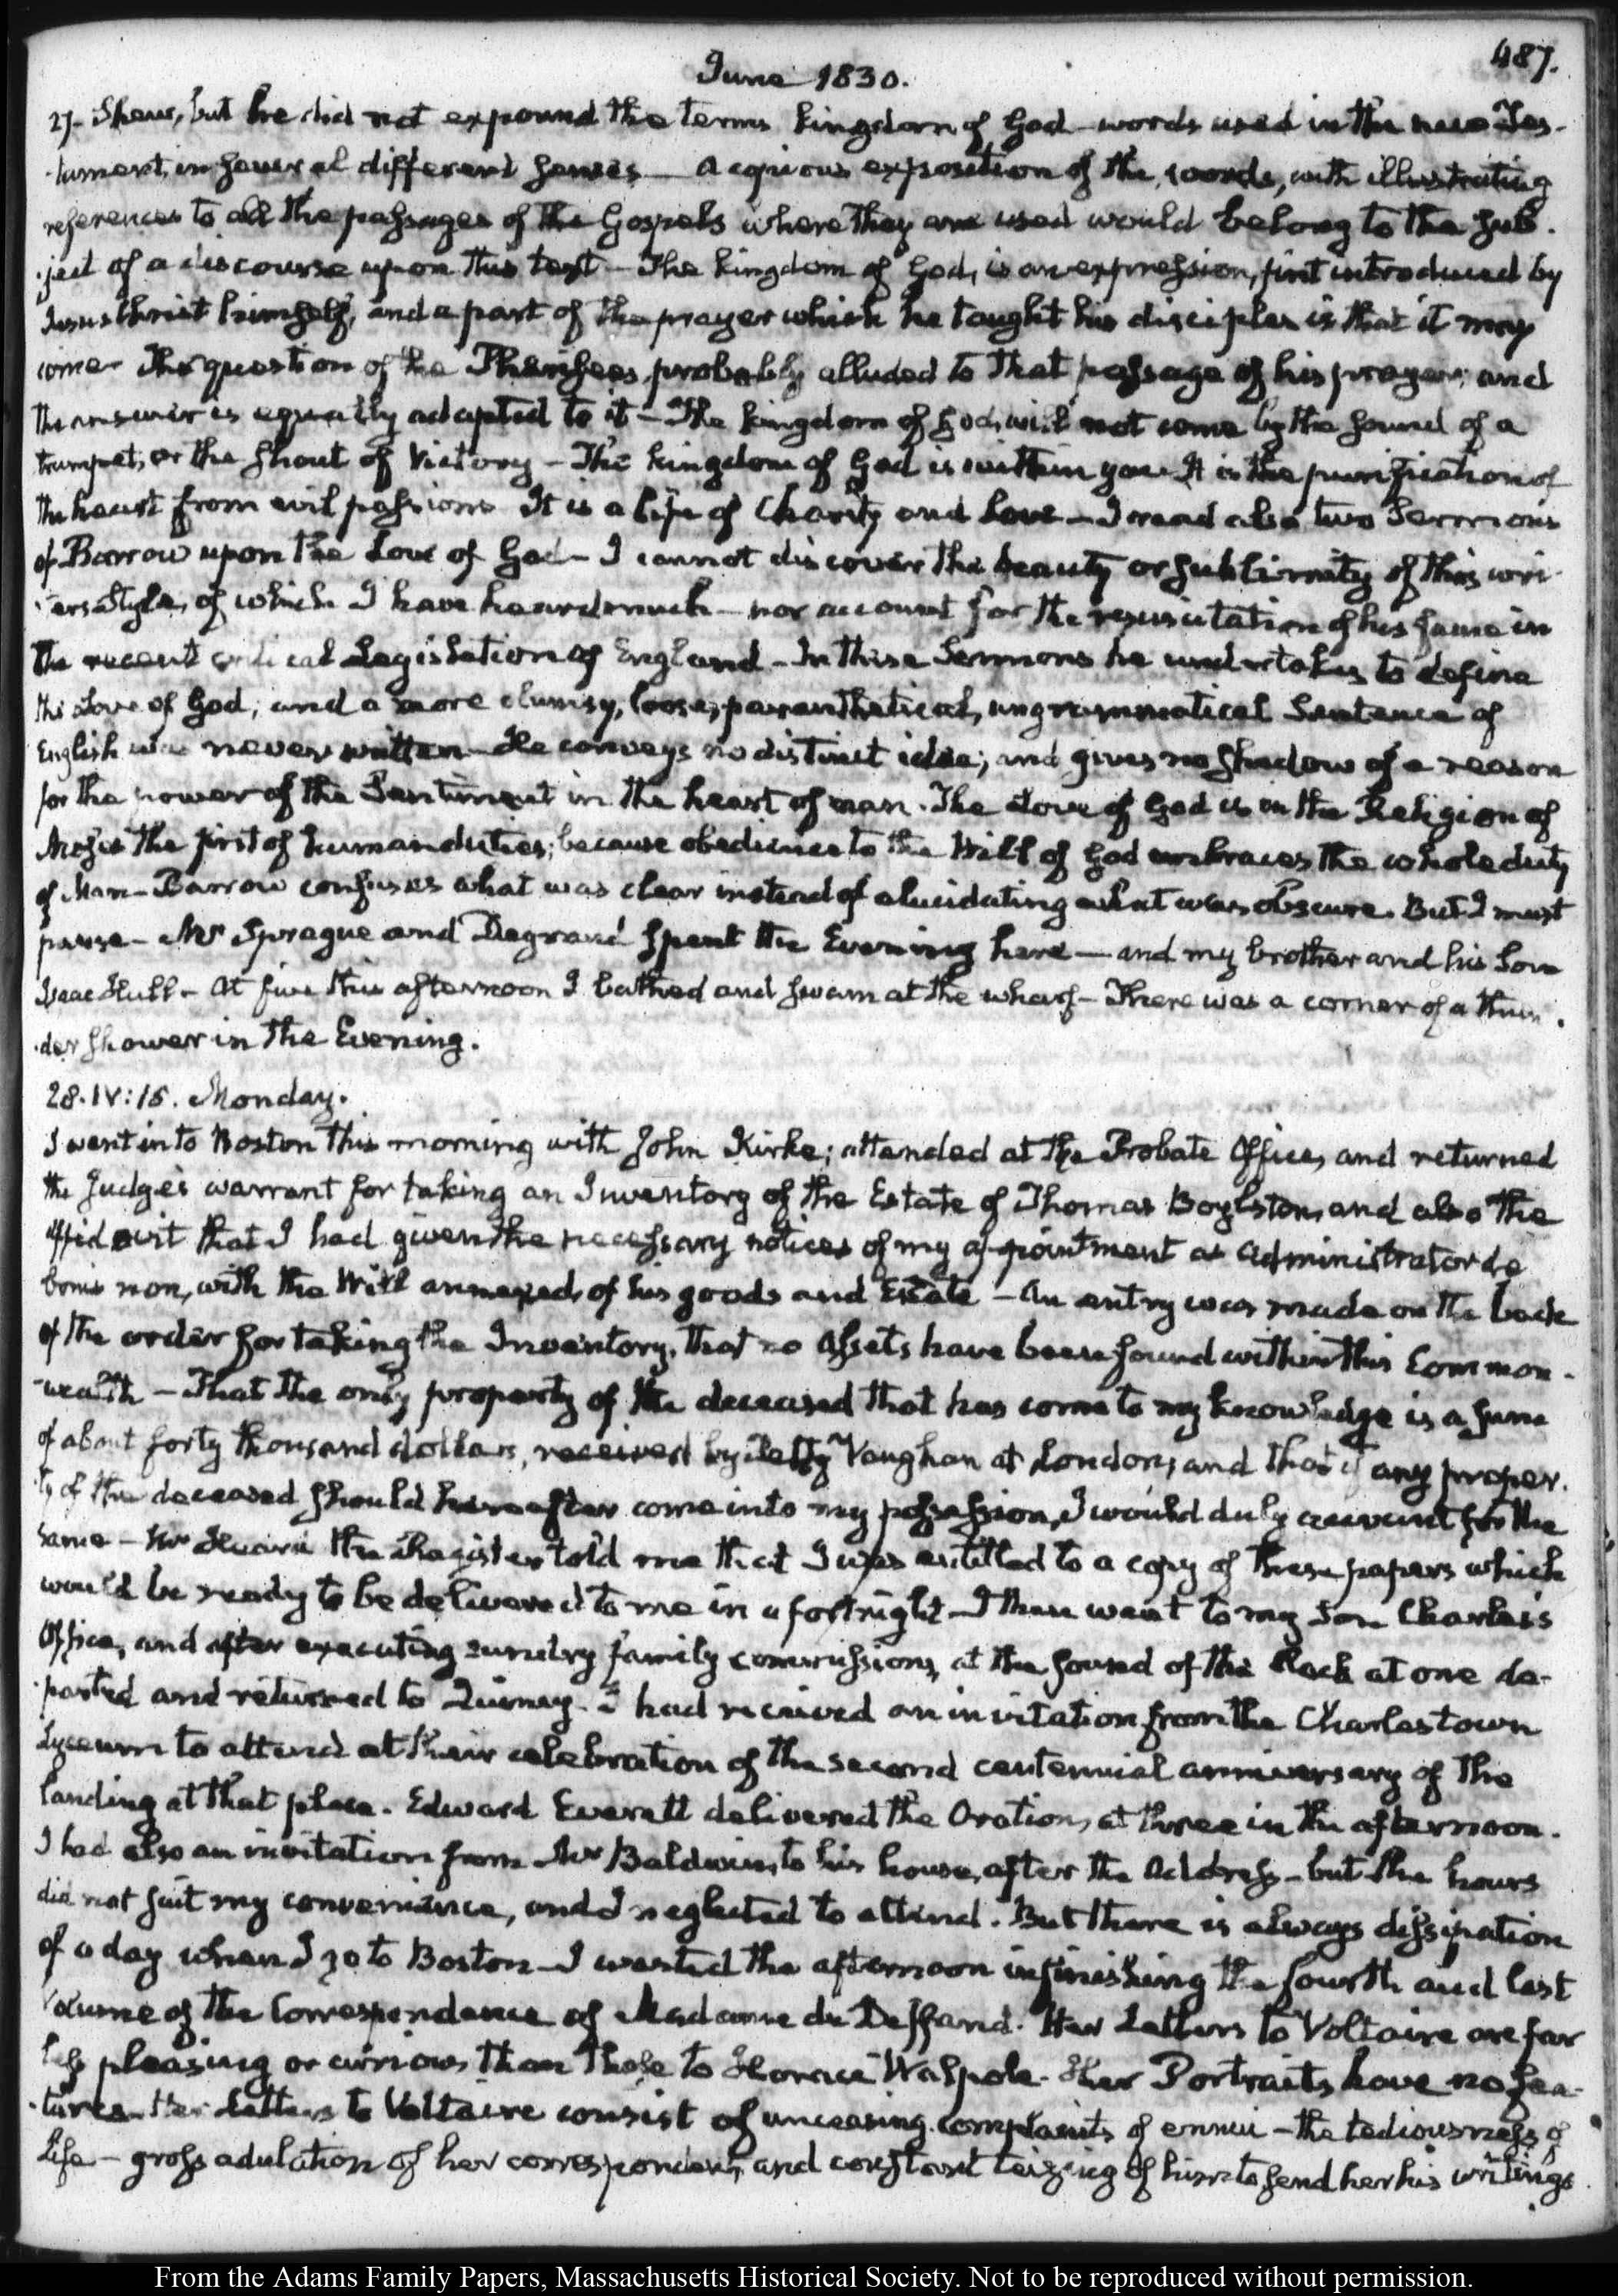 June 1830.
487.
27. Shew, but he did not expound the terms kingdom of God—words used in the new Tes-
-tament, in several different senses—A copious exposition of the words, with illustrating
references to all the passages of the Gospels where they are used would belong to the sub-
-ject of a discourse upon this text—The kingdom of God, is an expression, first introduced by
Jesus Christ himself, and a part of the prayer which he taught his disciples is that it may
come—The question of the Pharisees, probably alluded to that passage of his prayer; and
the answer is equally adapted to it—The kingdom of God, will not come by the sound of a
trumpet, or the shout of Victory—The kingdom of God is within you. It is the purification of
the heart from evil passions. It is a life of Charity and Love—I read also two Sermons
of Barrow upon the Love of God—I cannot discover the beauty or sublimity of this wri-
-ters Style, of which I have heard much—nor account for the resuscitation of his fame in
the recent critical Legislation of England—In these Sermons he undertakes to define
the Love of God; and a more clumsy, loose, parenthetical, ungrammatical Sentence of
English was never written—He conveys no distinct idea; and gives no shadow of a reason
for the power of the Sentiment in the heart of man. The Love of God is in the Religion of
Moses the first of human duties; because obedience to the Will of God embraces the whole duty
of Man—Barrow confuses what was clear instead of elucidating what was obscure. But I must
pause—Mr Sprague and Degrand spent the Evening here—and my brother and his Son
Isaac Hull—At five this afternoon I bathed and swam at the wharf—There was a corner of a thun-
-der shower in the Evening.
28. IV:15. Monday.
I went into Boston this morning with John Kirke; attended at the Probate Office, and returned
the Judge's warrant for taking an Inventory of the Estate of Thomas Boylston, and also the
affidavit that I had given the necessary notices of my appointment as administrator de
bonis non, with the Will annexed, of his goods and Estate—An entry was made on the back
of the order for taking the Inventory, that no Assets have been found within this Common-
-wealth—That the only property of the deceased that has come to my knowledge is a sum
of about forty thousand dollars, received by Petty Vaughan at London; and that if any proper-
ty of the deceased should hereafter come into my possession, I would duly account for the
same—Mr the Register told me that I was entitled to a copy of these papers which
would be ready to be delivered to me in a fortnight—I then went to my Son Charles's
Office, and after executing sundry family commissions, at the sound of the Clock at one de-
-parted and returned to Quincy. I had received an invitation from the Charlestown
Lyceum to attend at their celebration of the second centennial anniversary of the
landing at that place. Edward Everett delivered the Oration, at three in the afternoon.
I had also an invitation from Mr Baldwin, to his house, after the Address—but the hours
did not suit my convenience, and I neglected to attend. But there is always dissipation
of a day when I go to Boston—I wasted the afternoon in finishing the fourth and last
volume of the Correspondence of Madame du Deffand. Her Letters to Voltaire are far
less pleasing or curious, than those to Horace Walpole. Her Portraits have no fea-
-tures. Her Letters to Voltaire consist of unceasing complaints of ennui—the tediousness of
Life—gross adulation of her correspondent, and constant teizing of him to send her his writings.
From the Adams Family Papers, Massachusetts Historical Society. Not to be reproduced without permission.